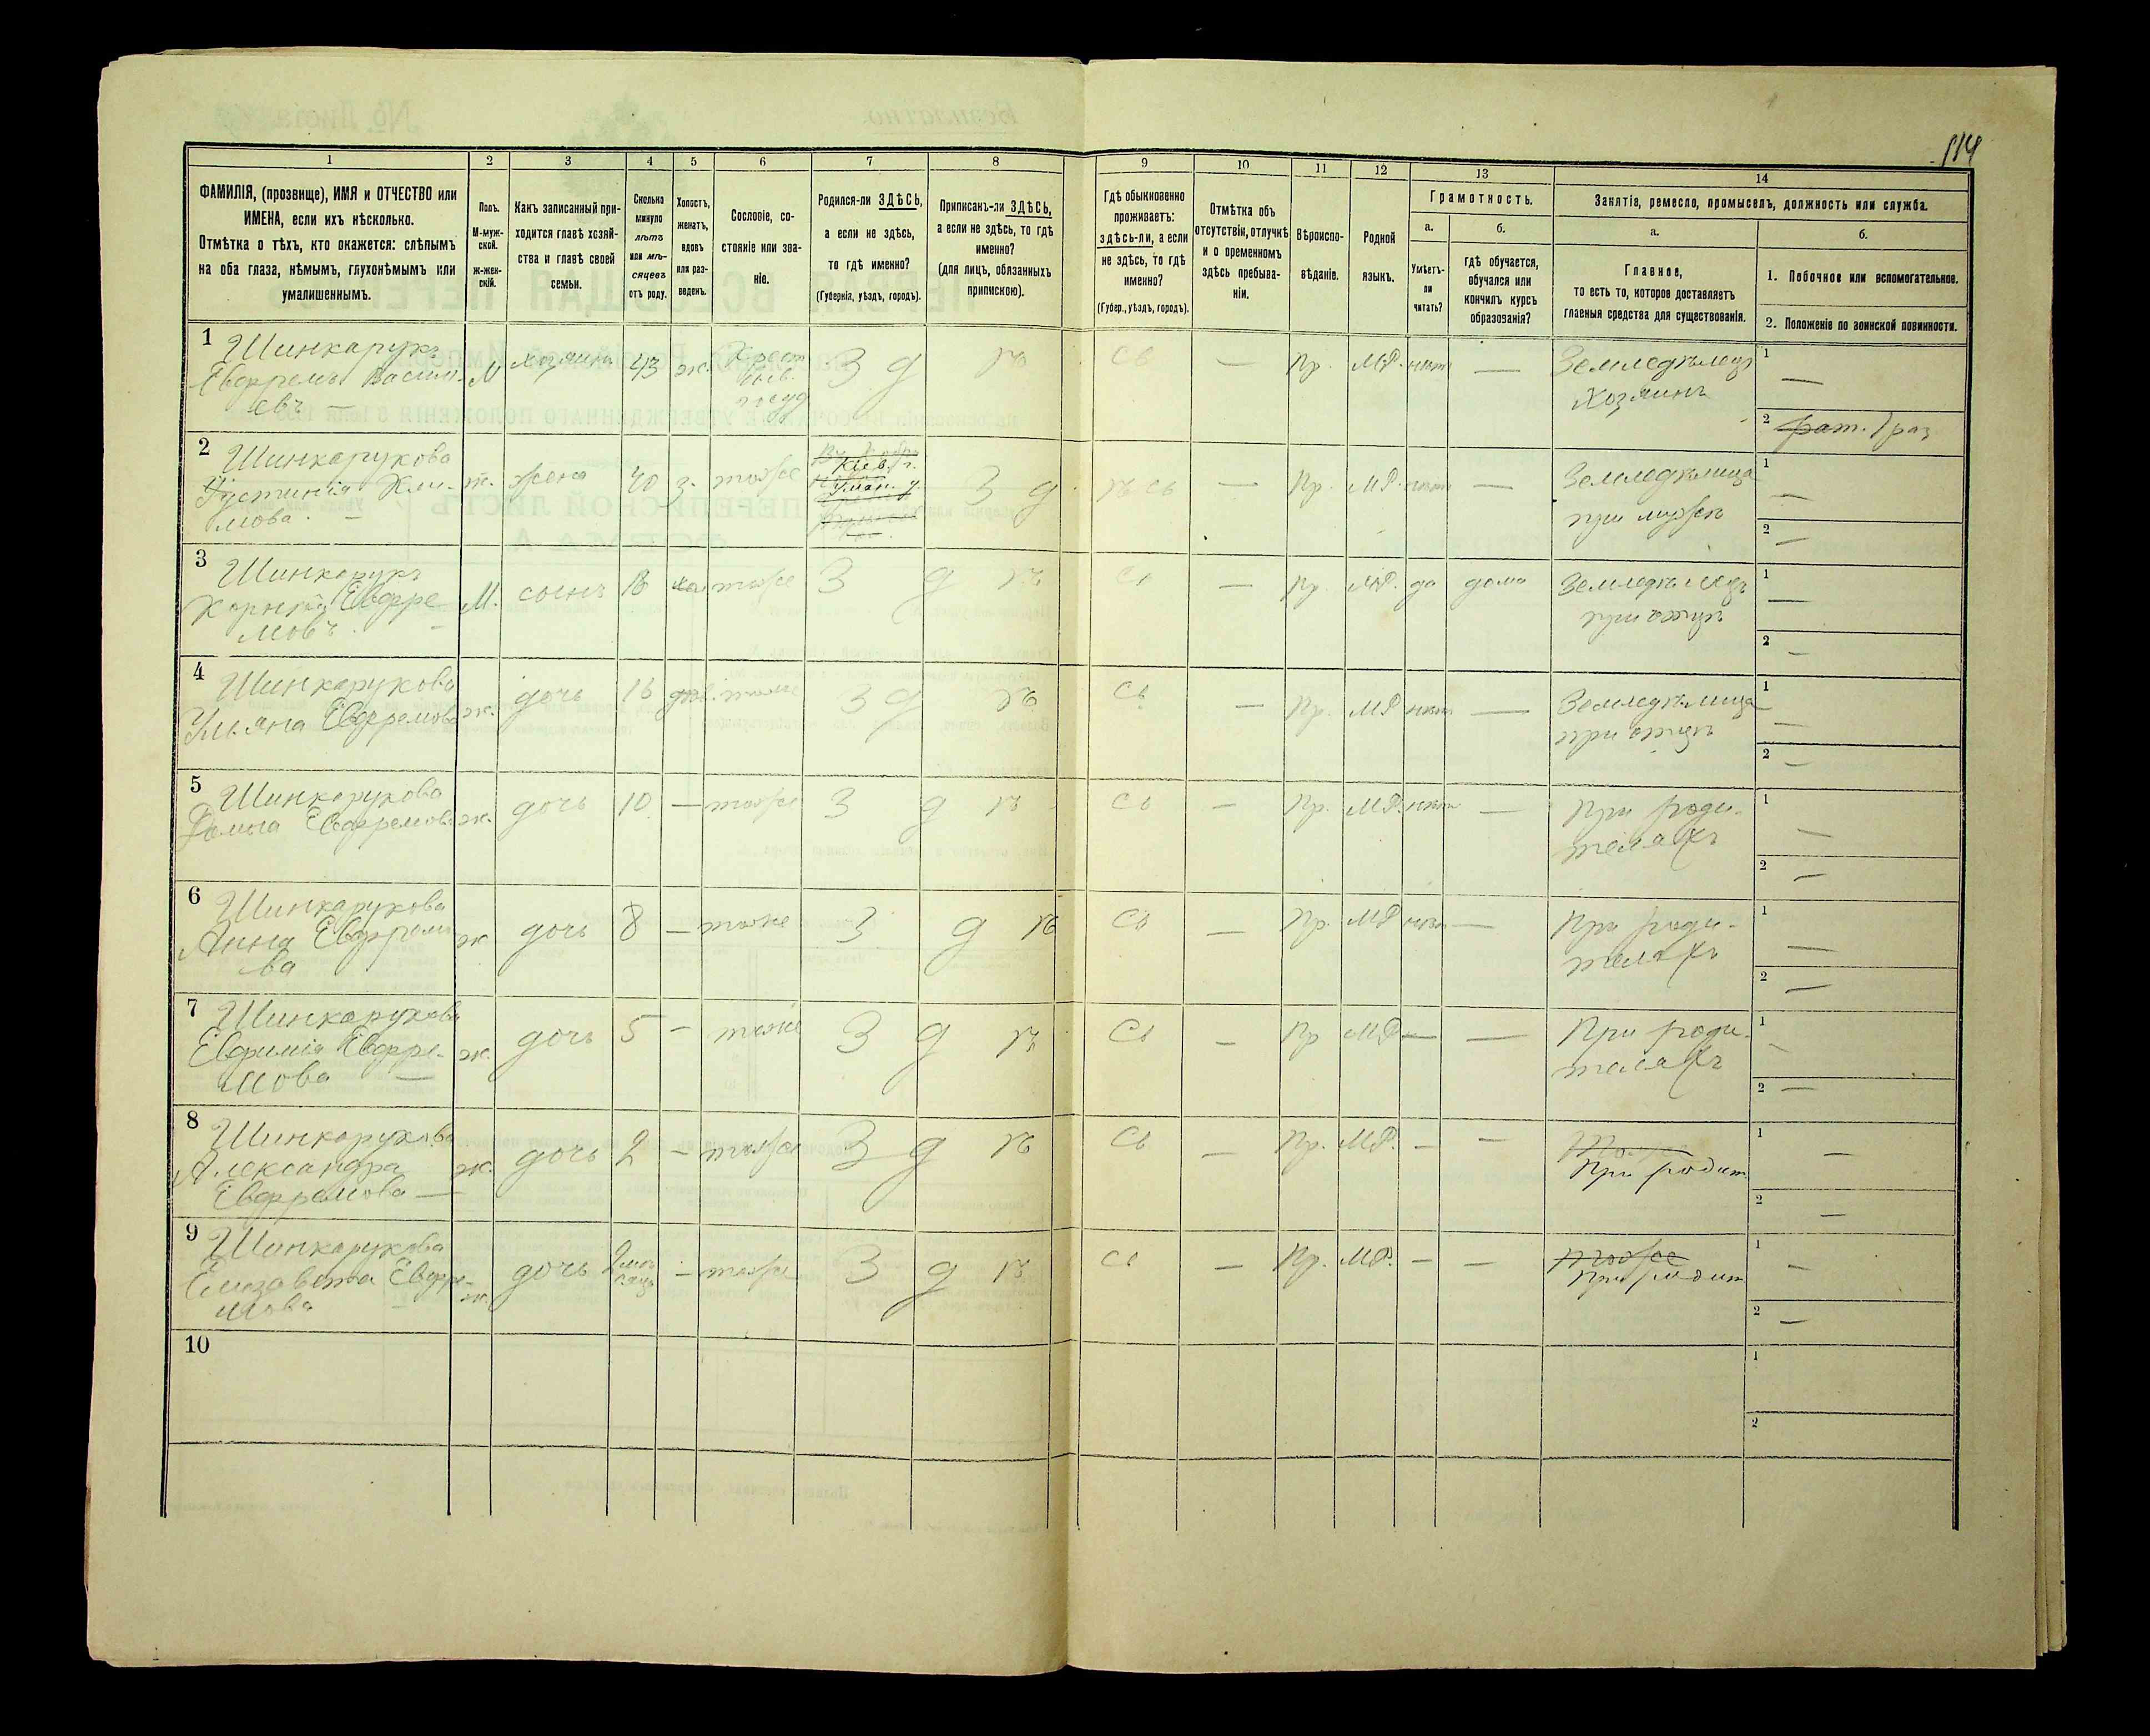 114
1 2 3 4 5 6 7 8 9 10 11 12 13 14
ФАМИЛІЯ, (прозвище), ИМЯ и ОТЧЕСТВО или
ИМЕНА, если ихъ нѣсколько.
Отмѣтка о тѣхъ, кто окажется: слѣпымъ
на оба глаза, нѣмымъ, глухонѣмымъ или
умалишеннымъ.
Полъ.
М-муж-
ской.
ж-жен-
скій.
Какъ записанный при-
ходится главѣ хозяй-
ства и главѣ своей
семьи.
Сколько
минуло
лѣтъ
или мѣ-
сяцевъ
отъ роду.
Холостъ,
женатъ,
вдовъ
или раз-
веденъ.
Сословіе, со-
стояніе или зва-
ніе.
Родился-ли ЗДѢСЬ,
а если не здѣсь,
то гдѣ именно?
(Губернія, уѣздъ, городъ).
Приписанъ-ли ЗДѢСЬ,
а если не здѣсь, то гдѣ
именно?
(для лицъ, обязанныхъ
припискою).
Гдѣ обыкновенно
проживаетъ:
здѣсь-ли, а если
не здѣсь, то гдѣ
именно?
(Губер., уѣздъ, городъ).
Отмѣтка объ
отсутствіи, отлучкѣ
и о временномъ
здѣсь пребыва-
ніи.
Вѣроиспо-
вѣданіе.
Родной
языкъ.
Грамотность.
а.
Умѣетъ-
ли
читать?
б.
гдѣ обучается,
обучался или
кончилъ курсъ
образованія?
Занятіе, ремесло, промыселъ, должность или служба.
а.
Главное,
то есть то, которое доставляетъ
главныя средства для существованія.
б.
1. Побочное или вспомогательное.
2. Положеніе по воинской повинности.
1 Шинкарукъ
Евфремъ Васил-
евъ —
М хозяинъ 43 ж. Крест.
З д ѣ сь — Пр. М.Р. нѣтъ —
Земледѣлецъ
Хозяинъ
1 —
2 рат. 1 раз
2 Шинкарукова
Устинія Кли-
мова. —
ж. жена 40 з. тоже
Кіев. г.
Уман. у.
З д ѣ сь — Пр. М.Р. нѣтъ —
Земледѣлица
при мужѣ
1 —
2 —
3 Шинкарукъ
Корнѣй Евфре
мовъ. —
М. сынъ 18 хол тоже З д ѣ сь — Пр. М.Р. да дома
Земледѣлецъ
при отцѣ
1 —
2 —
4 Шинкарукова
Ульяна Евфремова
ж. дочь дѣв. тоже З д ѣ сь — Пр. М.Р. нѣтъ —
Земледѣлица
при отцѣ
1 —
2 —
5 Шинкарукова
Евфремова
ж. дочь 10 — тоже З д ѣ сь — Пр. М.Р. нѣтъ —
При роди-
теляхъ
1 —
2 —
6 Шинкарукова
Анна Евфремо
ва
ж дочь 8 — тоже З д ѣ сь — Пр. М.Р. нѣтъ —
При роди-
теляхъ
1 —
2 —
7 Шинкарукова
Евфимія Евфре-
мова —
ж. дочь 5 — тоже З д ѣ сь — Пр М.Р. — —
При роди-
теляхъ
1 —
2 —
8 Шинкарукова
Александра
Евфремова —
ж. дочь 2 — тоже З д ѣ сь — Пр. М.Р. — —
Тоже
При родит.
1 —
2 —
9 Шинкарукова
Елизавета Евфре-
мова —
ж. дочь 2 мѣ
сяца
— тоже З д ѣ сь — Пр. М.Р. — —
тоже
При родит
1 —
2 —
10
1
2